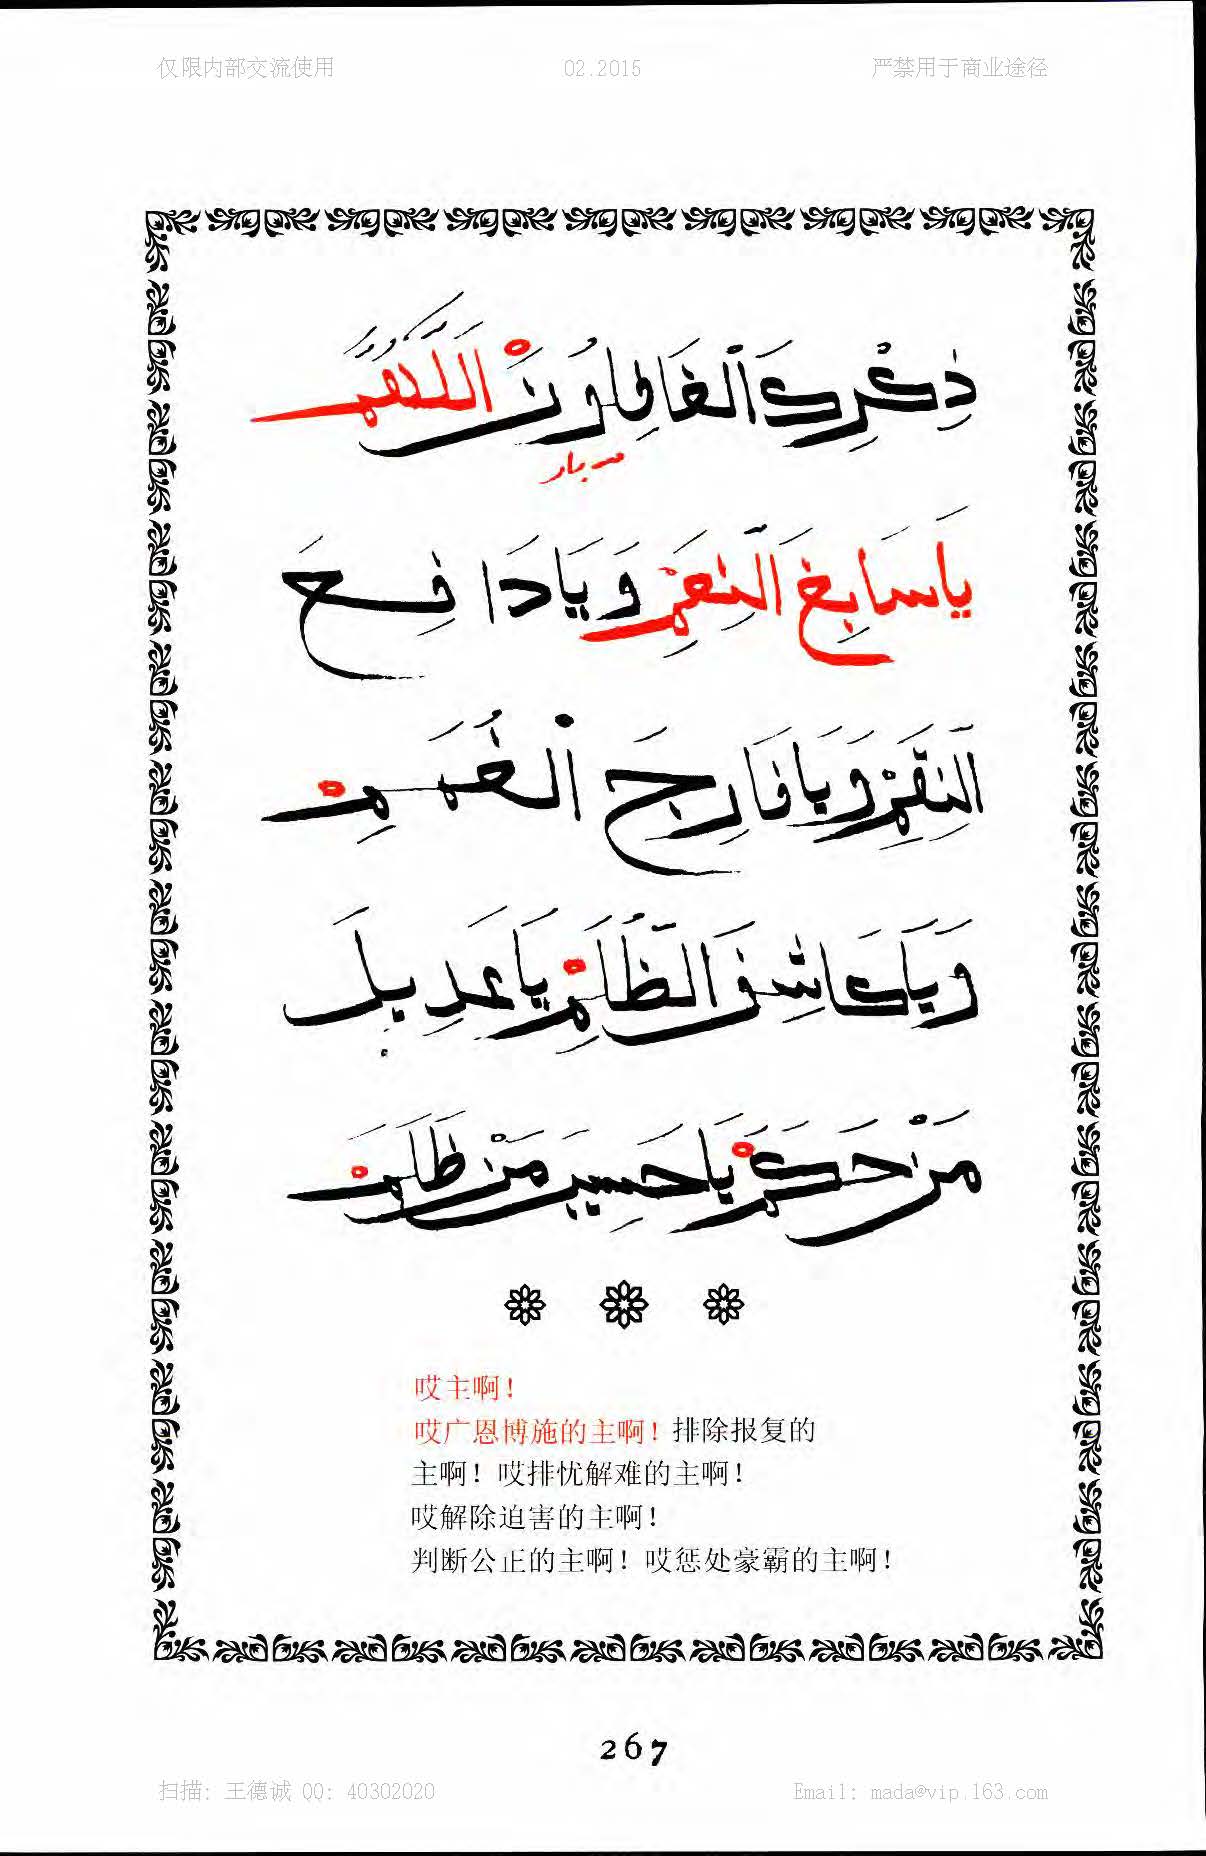 仅限内部交流使用 02.2015 严禁用于商业途径
ذِكْرِكَ ٱلْغَافِلُونَ اَللّٰهُمَّ
يَا سَابِغَ النِّعَمِ وَيَا دَافِعَ
النِّقَمِ وَيَا فَارِجَ الْغُمَمِ
وَيَا كَاشِفَ الظُّلَمِ يَا عَدِيلَ
مَنْ حَكَمَ يَا حَسِيبَ مَنْ ظَلَمَ
哎主啊！
哎广恩博施的主啊！排除报复的
主啊！哎排忧解难的主啊！
哎解除迫害的主啊！
判断公正的主啊！哎惩处豪霸的主啊！
267
扫描: 王德诚 QQ: 40302020 Email: mada@vip.163.com